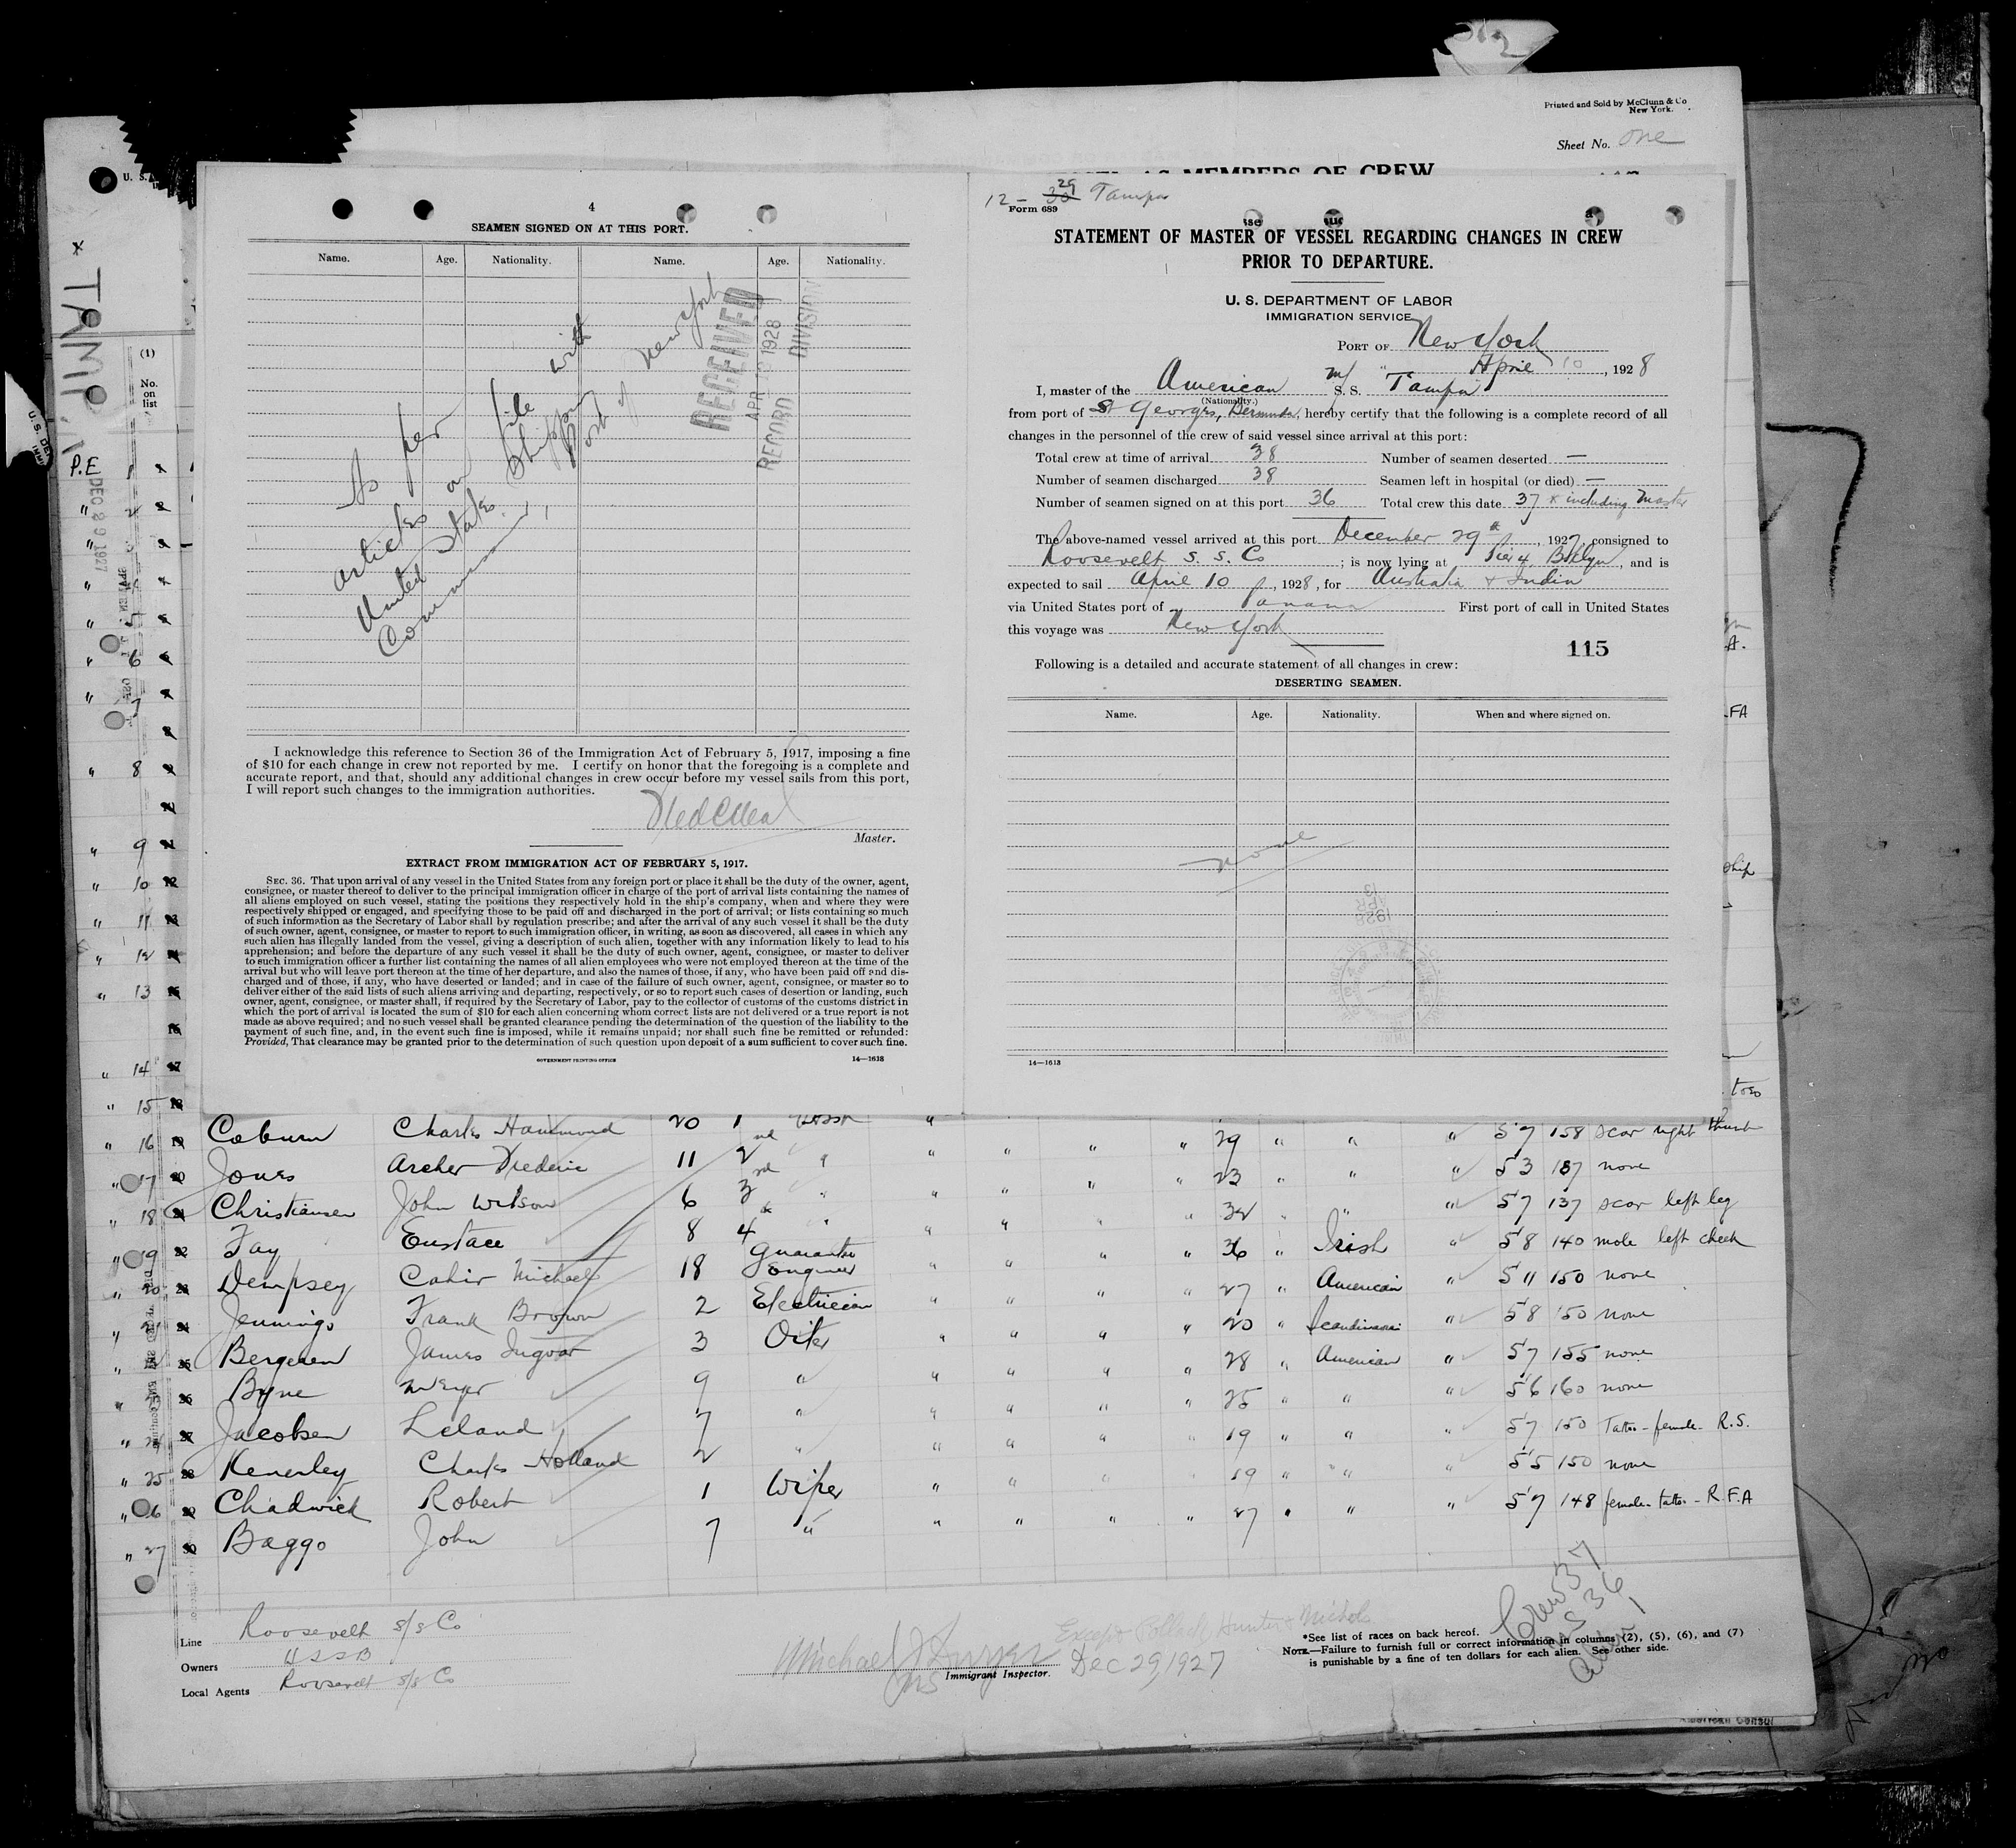 Printed and Sold by McClunn & Co
New York.
Sheet No. One
AS MEMBERS OF CREW
U. S.
TAMPA
(1)
No.
on
list
P.E
DEC 29 1927
4
SEAMEN SIGNED ON AT THIS PORT.
Name. Age. Nationality. Name. Age. Nationality.
As per
articles on file with
United States Shipping
Commissioner, Port of New York
RECEIVED
APR 1928
RECORD DIVISION
I acknowledge this reference to Section 36 of the Immigration Act of February 5, 1917, imposing a fine
of $10 for each change in crew not reported by me. I certify on honor that the foregoing is a complete and
accurate report, and that, should any additional changes in crew occur before my vessel sails from this port,
I will report such changes to the immigration authorities.
Master.
EXTRACT FROM IMMIGRATION ACT OF FEBRUARY 5, 1917.
SEC. 36. That upon arrival of any vessel in the United States from any foreign port or place it shall be the duty of the owner, agent,
consignee, or master thereof to deliver to the principal immigration officer in charge of the port of arrival lists containing the names of
all aliens employed on such vessel, stating the positions they respectively hold in the ship's company, when and where they were
respectively shipped or engaged, and specifying those to be paid off and discharged in the port of arrival; or lists containing so much
of such information as the Secretary of Labor shall by regulation prescribe; and after the arrival of any such vessel it shall be the duty
of such owner, agent, consignee, or master to report to such immigration officer, in writing, as soon as discovered, all cases in which any
such alien has illegally landed from the vessel, giving a description of such alien, together with any information likely to lead to his
apprehension; and before the departure of any such vessel it shall be the duty of such owner, agent, consignee, or master to deliver
to such immigration officer a further list containing the names of all alien employees who were not employed thereon at the time of the
arrival but who will leave port thereon at the time of her departure, and also the names of those, if any, who have been paid off and dis-
charged and of those, if any, who have deserted or landed; and in case of the failure of such owner, agent, consignee, or master so to
deliver either of the said lists of such aliens arriving and departing, respectively, or so to report such cases of desertion or landing, such
owner, agent, consignee, or master shall, if required by the Secretary of Labor, pay to the collector of customs of the customs district in
which the port of arrival is located the sum of $10 for each alien concerning whom correct lists are not delivered or a true report is not
made as above required; and no such vessel shall be granted clearance pending the determination of the question of the liability to the
payment of such fine, and, in the event such fine is imposed, while it remains unpaid; nor shall such fine be remitted or refunded:
Provided, That clearance may be granted prior to the determination of such question upon deposit of a sum sufficient to cover such fine.
GOVERNMENT PRINTING OFFICE 14—1618
12 - 29 Tampa
Form 689
STATEMENT OF MASTER OF VESSEL REGARDING CHANGES IN CREW
PRIOR TO DEPARTURE.
U. S. DEPARTMENT OF LABOR
IMMIGRATION SERVICE
PORT OF New York
April 10, 1928
I, master of the American M/ S. S. "Tampa"
(Nationality.)
from port of St Georges, Bermuda, hereby certify that the following is a complete record of all
changes in the personnel of the crew of said vessel since arrival at this port:
Total crew at time of arrival 38 Number of seamen deserted —
Number of seamen discharged 38 Seamen left in hospital (or died) —
Number of seamen signed on at this port 36 Total crew this date 37 * including Master
The above-named vessel arrived at this port December 29th, 1927, consigned to
Roosevelt S. S. Co ; is now lying at Pier 4, Bklyn, and is
expected to sail April 10, 1928, for Australia & India
via United States port of Panama First port of call in United States
this voyage was New York
115
Following is a detailed and accurate statement of all changes in crew:
DESERTING SEAMEN.
Name. Age. Nationality. When and where signed on.
none
14—1618
" 16 19 Coburn Charles Hammond 20 1 " " " " 29 " " " 5'7 158 scar right thumb
" 17 20 Jones Archer Frederic 11 2nd " " " " " 23 " " " 5'3 187 none
" 18 21 Christiansen John Wilson 6 3rd " " " " " 32 " " " 5'7 137 scar left leg
" 19 22 Fay Eustace 8 4 " " " " " 36 " Irish " 5'8 140 mole left cheek
" 20 23 Dempsey Cahir Michael 18 Guarantee Engineer " " " " 27 " American " 5'11 150 none
" 21 24 Jennings Frank Brown 2 Electrician " " " " 20 " Scandinavian " 5'8 150 none
" 22 25 Bergesen James Ingvor 3 Oiler " " " " 28 " American " 5'7 155 none
" 23 26 Byne Meyer 9 " " " " " 25 " " " 5'6 160 none
" 24 27 Jacobsen Leland 7 " " " " " 19 " " " 5'7 150 Tattoo - female - R.S.
" 25 28 Kenerley Charles Holland 2 " " " " " 19 " " " 5'5 150 none
" 26 29 Chadwick Robert 1 Wiper " " " " 27 " " " 5'7 148 female - tattoo - R.F.A
" 27 30 Baggo John 7 "
Line Roosevelt S/S Co
Owners U S S B
Local Agents Roosevelt S/S Co
Except Pollack, Hunter & Nichol
Michael J Dwyer
Immigrant Inspector. Dec 29, 1927
*See list of races on back hereof.
NOTE.—Failure to furnish full or correct information in columns (2), (5), (6), and (7)
is punishable by a fine of ten dollars for each alien. See other side.
Crew 37
US 36
Alien 1